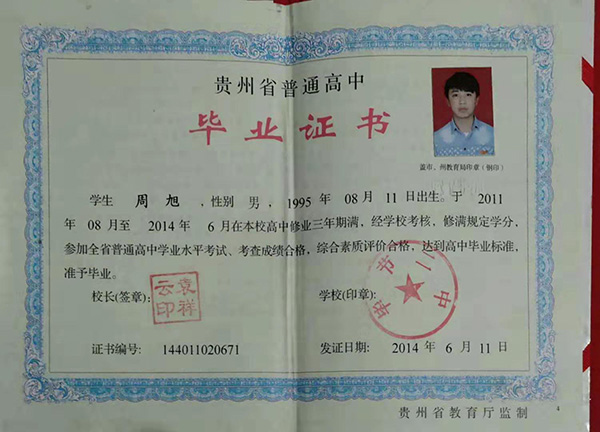 贵州省普通高中
毕业证书
盖市、州教育局印章(钢印)
学生 周旭 ,性别 男 ,1995 年 08 月 11 日出生。于 2011
年 08 月至 2014 年 6 月在本校高中修业三年期满,经学校考核,修满规定学分,
参加全省普通高中学业水平考试、考查成绩合格,综合素质评价合格,达到高中毕业标准,
准予毕业。
校长(签章):
袁祥云印
学校(印章):
毕节二中
证书编号: 144011020671
发证日期: 2014 年 6 月 11 日
贵州省教育厅监制
4